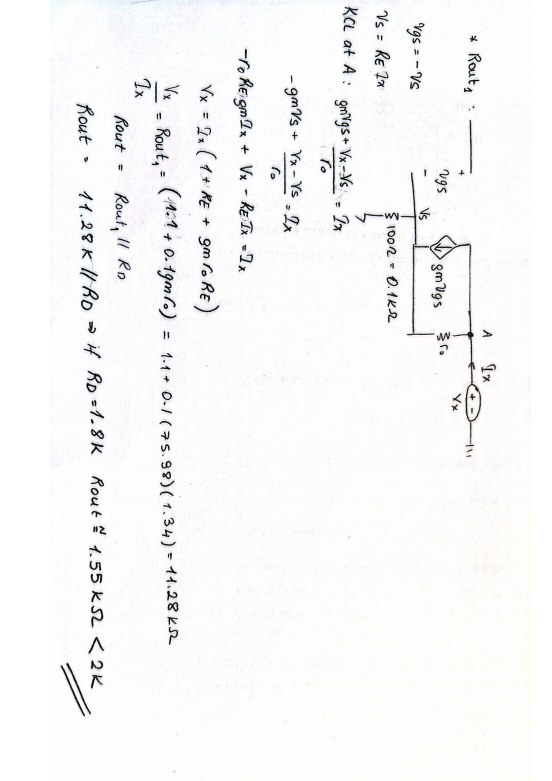 * Rout₁ :
+
Vgs
-
Vgs = -Vs
Vs = RE Ix
A
Ix
+ -
Vx
gmVgs
r₀
Vs
100Ω = 0.1kΩ
KCL at A : gmVgs + (Vx - Vs)/r₀ = Ix
-gmVs + (Vx - Vs)/r₀ = Ix
-r₀ RE gm Ix + Vx - RE Ix = Ix
Vx = Ix (1 + RE + gm r₀ RE)
Vx/Ix = Rout₁ = (1.1 + 0.1gmr₀) = 1.1 + 0.1 (75.98)(1.34) = 11.28 kΩ
Rout = Rout₁ // RD
Rout = 11.28K // RD ⇒ if RD = 1.8K Rout ≅ 1.55 kΩ < 2K